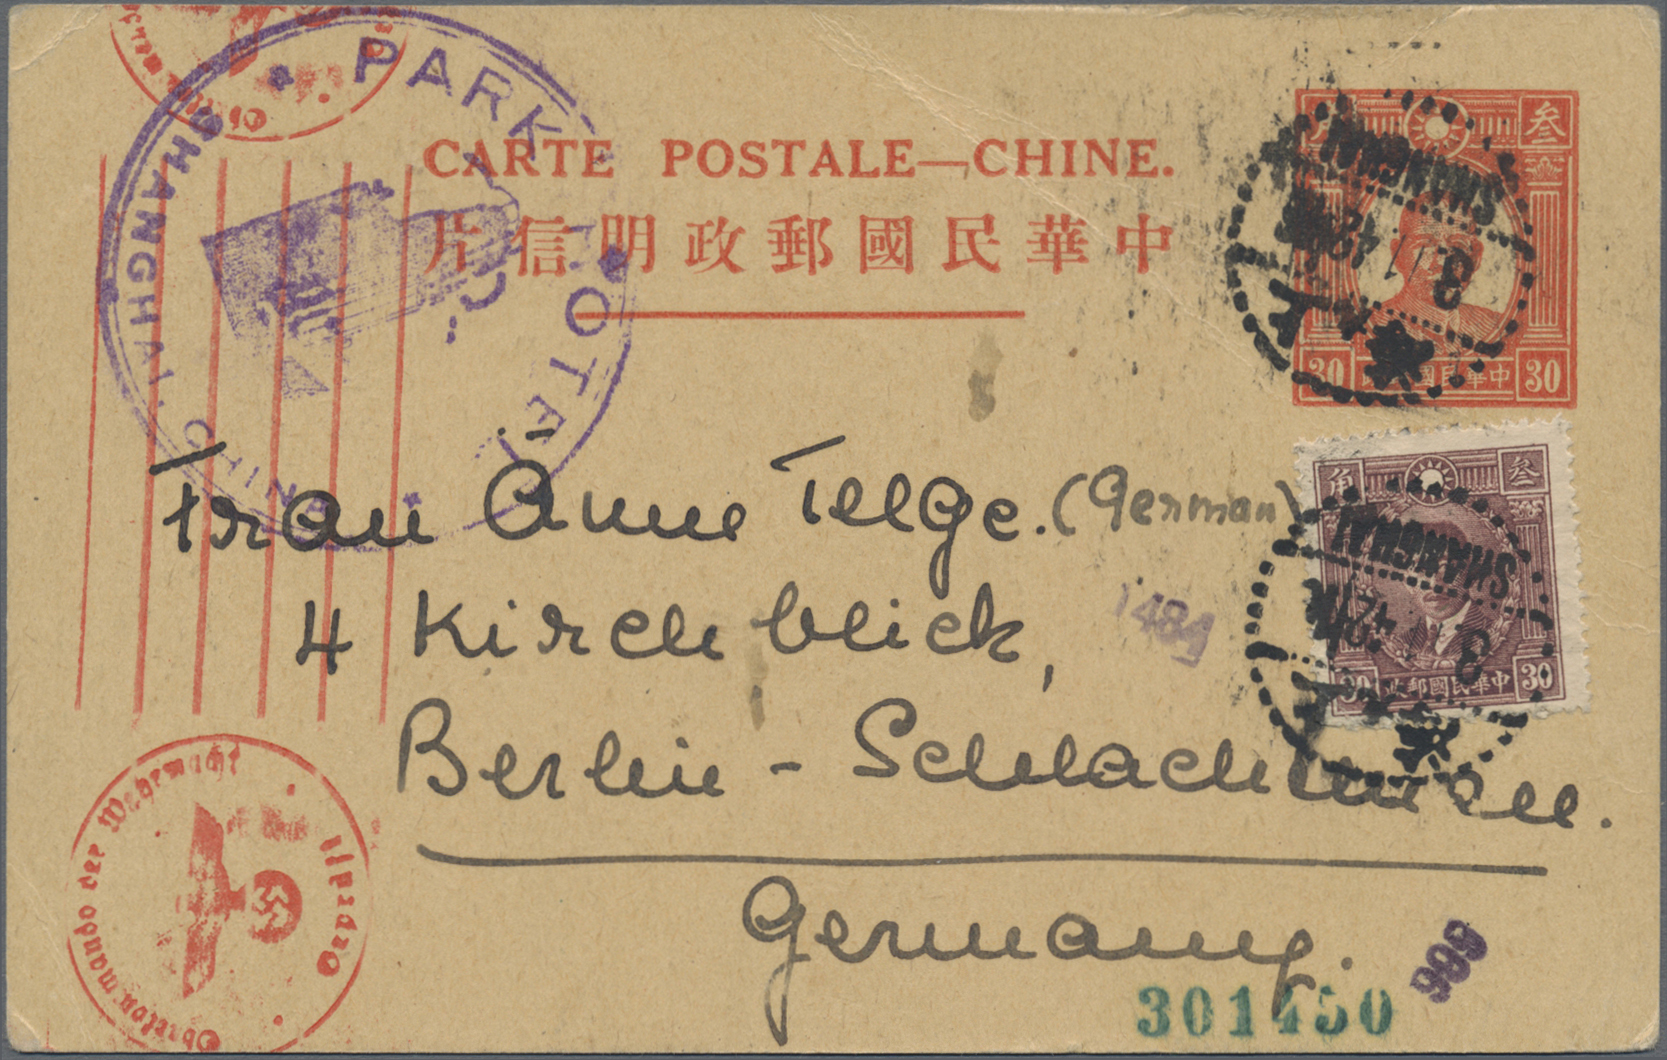 PARK HOTEL
SHANGHAI, CHINA
CARTE POSTALE—CHINE.
中華民國郵政明信片
叁
30 中華民國郵政 30
SHANGHAI
上海
Frau Anne Telge. (German)
4 Kirchblick,
Berlin - Schlachtensee.
Germany.
角 叁
30 中華民國郵政 30
SHANGHAI
上海
1484
999
301450
Oberkommando der Wehrmacht
Geprüft